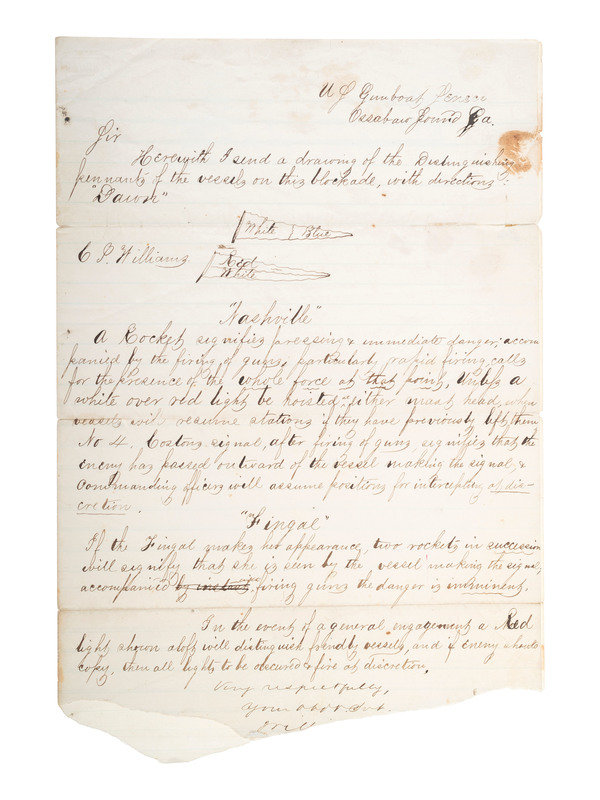 U S Gunboat Seneca
Ossabaw Sound Ga.
Sir
Herewith I send a drawing of the Distinguishing
pennants of the vessels on this blockade, with directions:
"Dawn"
White Blue
C P. Williams
Red
White
"Nashville"
A Rocket signifies pressing & immediate danger; accom
panied by the firing of guns, particularly rapid firing, calls
for the presence of the whole force at that point, Unless a
white over red light be hoisted at either mast head, when
vessels will resume stations if they have previously left them
No 4. Costons signal, after firing of guns signifies that the
enemy has passed outward of the vessel making the signal, &
Commanding officers will assume positions for intercepting at dis-
cretion.
"Fingal"
If the Fingal makes her appearance, two rockets in succession
will signify that she is seen by the vessel making the signal,
accompanied by instant firing guns the danger is imminent.
In the event of a general engagement a Red
light shown aloft will distinguish friendly vessels, and if enemy should
copy, then all lights to be obscured & fire at discretion.
Very respectfully,
Your Obdt Svt.